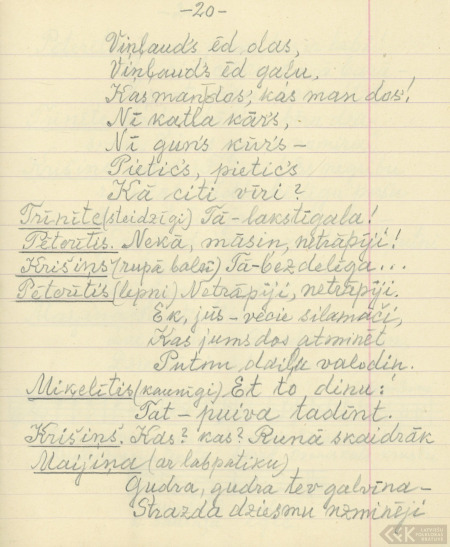 -20-
Viņļauds ēd olas,
Viņļauds ēd gaļu,
Kas man dos, kas man dos!
Nī katla kārs,
Nī guns kūrs -
Pietics, pietics
Kā citi vīri?
Trīnīte (steidzīgi) Tā - lakstīgala!
Pētorītis. Nekā, māsiņ, netrāpīji!
Krišiņš (rupā balsī) Tā - bezdelīga...
Pētorītis (lepni) Netrāpīji, netrāpīji.
Ek, jūs - vecie silamači,
Kas jums dos atminēt
Putnu daiļu valodiņ.
Miķelītis (kaunīgi) Et to dinu:
Tat - puiva tadīnt.
Krišiņš. Kas? kas? Runā skaidrāk
Maijiņa (ar labpatiku)
Gudra, gudra tev galviņa -
Strazda dziesmu uzminēji
LATVIEŠU FOLKLORAS KRĀTUVE